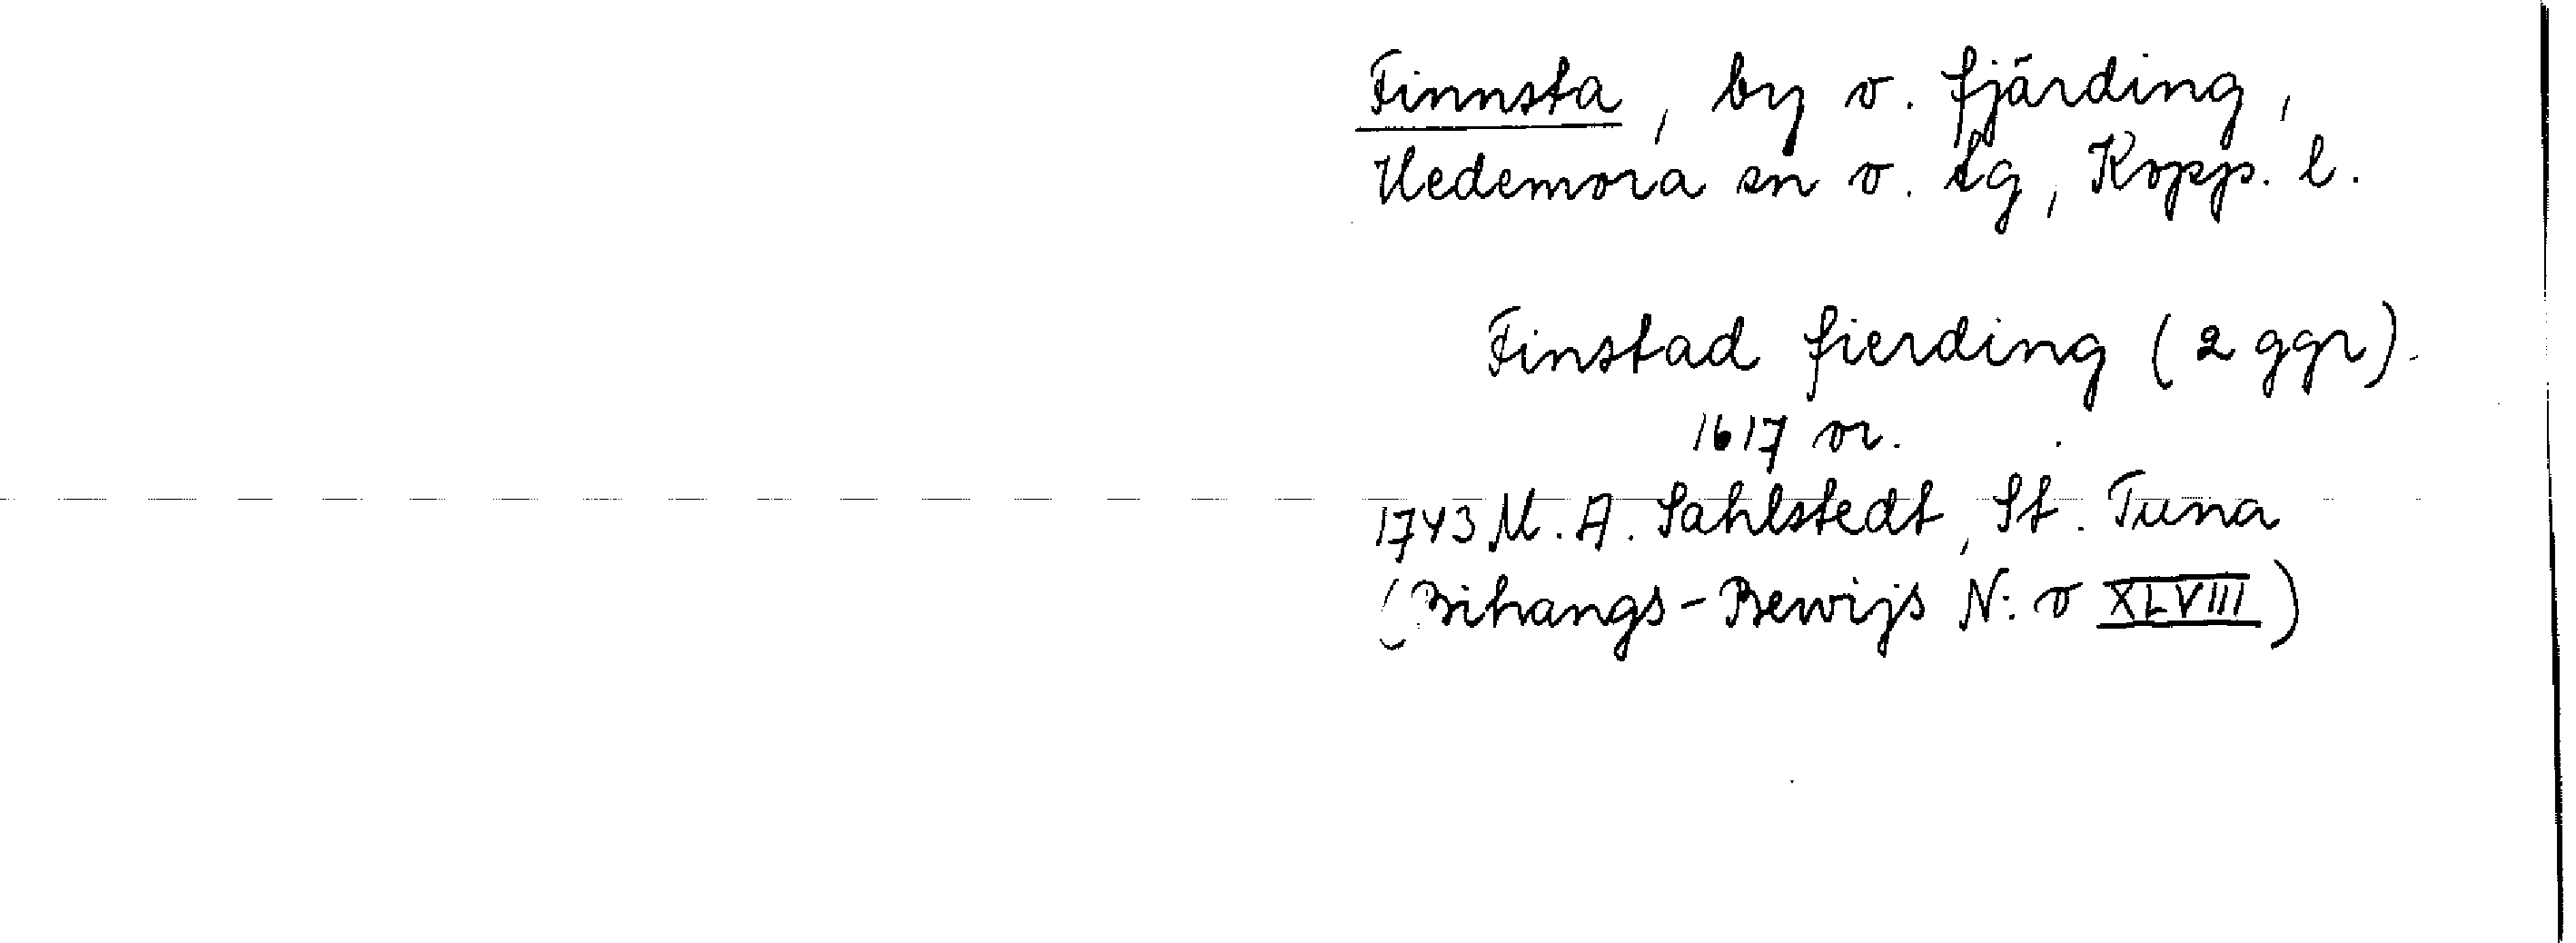 Finnsta, by o. fjärding,
Hedemora sn o. tg, Kopp. l.
Finstad fierding (2 ggr).
1617 or.
1743 M. A. Sahlstedt, St. Tuna
(Bihangs-Bewijs N:o XLVIII)